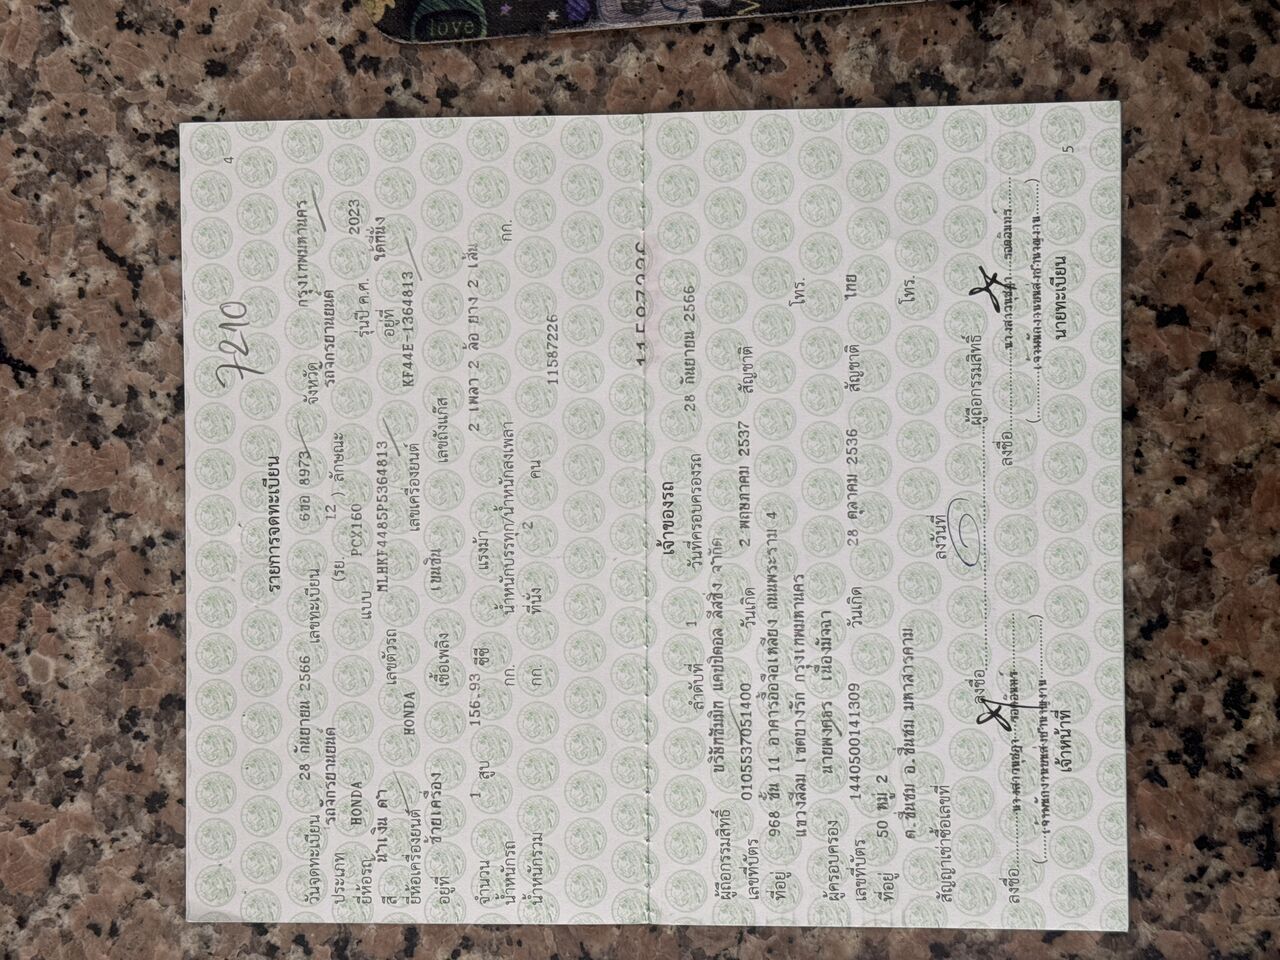 love
4
7210
รายการจดทะเบียน
วันจดทะเบียน 28 กันยายน 2566 เลขทะเบียน 6ขอ 8973 จังหวัด กรุงเทพมหานคร
ประเภท รถจักรยานยนต์ (รย. 12 ) ลักษณะ รถจักรยานยนต์
ยี่ห้อรถ HONDA แบบ PCX160 รุ่นปี ค.ศ. 2023
สี น้ำเงิน ดำ เลขตัวรถ MLHKF4485P5364813 อยู่ที่ ใต้ที่นั่ง
ยี่ห้อเครื่องยนต์ HONDA เลขเครื่องยนต์ KF44E-1364813
อยู่ที่ ซ้ายเครื่อง เชื้อเพลิง เบนซิน เลขถังแก๊ส
จำนวน 1 สูบ 156.93 ซีซี แรงม้า 2 เพลา 2 ล้อ ยาง 2 เส้น
น้ำหนักรถ กก. น้ำหนักบรรทุก/น้ำหนักลงเพลา กก.
น้ำหนักรวม กก. ที่นั่ง 2 คน
11587226
11587226
เจ้าของรถ
ลำดับที่ 1 วันที่ครอบครองรถ 28 กันยายน 2566
ผู้ถือกรรมสิทธิ์ บริษัทซัมมิท แคปปิตอล ลีสซิ่ง จำกัด
เลขที่บัตร 0105537051400 วันเกิด 2 พฤษภาคม 2537 สัญชาติ
ที่อยู่ 968 ชั้น 11 อาคารอื้อจือเหลียง ถนนพระราม 4
แขวงสีลม เขตบางรัก กรุงเทพมหานคร โทร.
ผู้ครอบครอง นายพงศธร เนื่องมัจฉา
เลขที่บัตร 1440500141309 วันเกิด 28 ตุลาคม 2536 สัญชาติ ไทย
ที่อยู่ 50 หมู่ 2
ต.ชื่นชม อ.ชื่นชม มหาสารคาม โทร.
สัญญาเช่าซื้อเลขที่ ลงวันที่
ลงชื่อ ผู้ถือกรรมสิทธิ์
ลงชื่อ ลงชื่อ
(เจ้าพนักงานขนส่งชำนาญงาน) (เจ้าพนักงานขนส่งชำนาญงาน)
เจ้าหน้าที่ นายทะเบียน
5